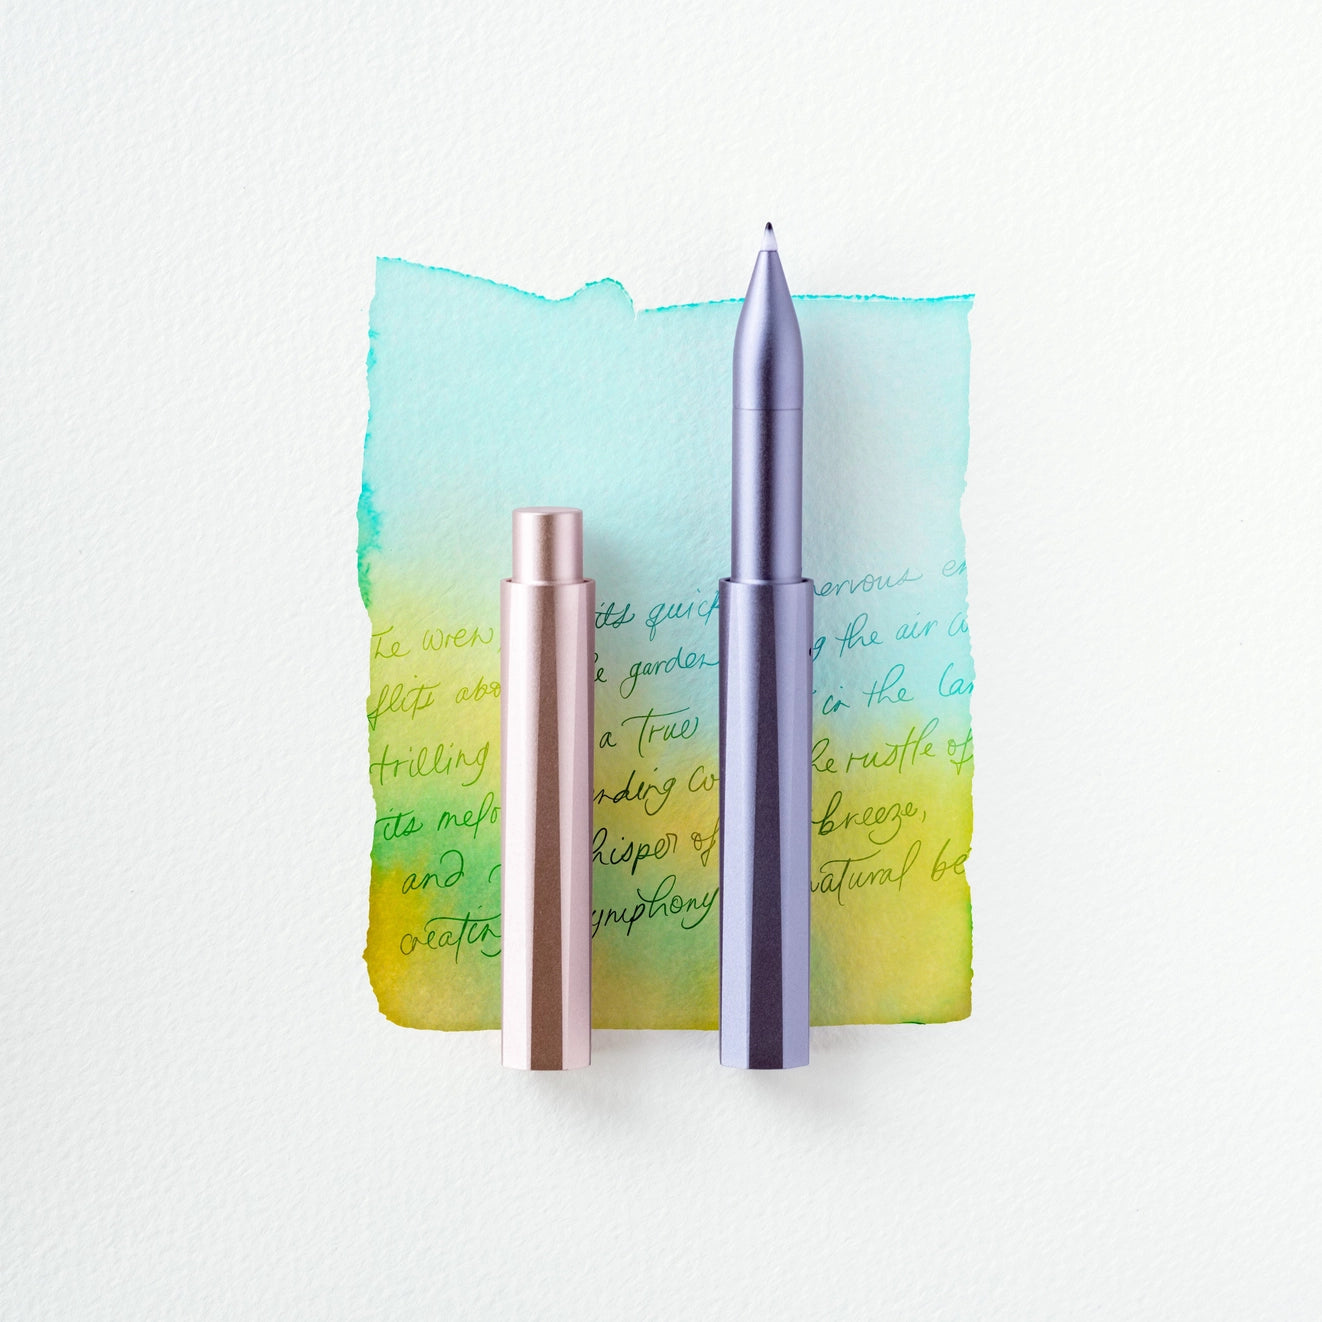 The wren, its quick nervous en
flits abo he garden g the air w
trilling a true in the lan
its melo nding co he rustle of
and hisper of breeze,
creatin ymphony natural be